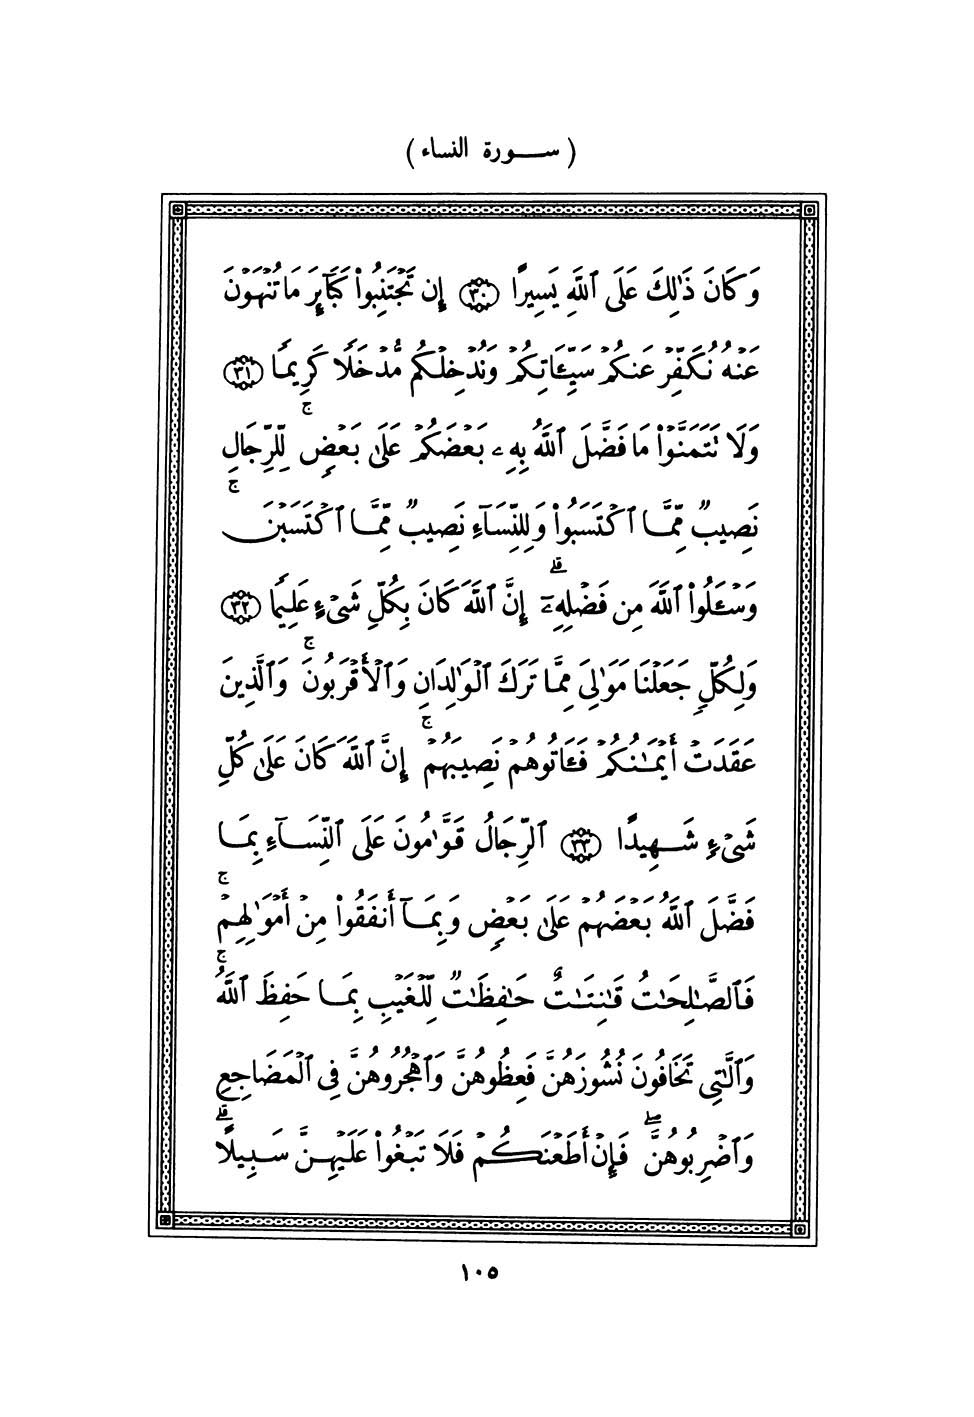 ( ســورة النساء )
وَكَانَ ذَٰلِكَ عَلَى ٱللَّهِ يَسِيرًا ۝٣٠ إِن تَجْتَنِبُوا۟ كَبَآئِرَ مَا تُنْهَوْنَ
عَنْهُ نُكَفِّرْ عَنكُمْ سَيِّـَٔاتِكُمْ وَنُدْخِلْكُم مُّدْخَلًا كَرِيمًا ۝٣١
وَلَا تَتَمَنَّوْا۟ مَا فَضَّلَ ٱللَّهُ بِهِۦ بَعْضَكُمْ عَلَىٰ بَعْضٍ ۚ لِّلرِّجَالِ
نَصِيبٌ مِّمَّا ٱكْتَسَبُوا۟ وَلِلنِّسَآءِ نَصِيبٌ مِّمَّا ٱكْتَسَبْنَ ۚ
وَسْـَٔلُوا۟ ٱللَّهَ مِن فَضْلِهِۦٓ ۗ إِنَّ ٱللَّهَ كَانَ بِكُلِّ شَىْءٍ عَلِيمًا ۝٣٢
وَلِكُلٍّ جَعَلْنَا مَوَٰلِىَ مِمَّا تَرَكَ ٱلْوَٰلِدَانِ وَٱلْأَقْرَبُونَ ۚ وَٱلَّذِينَ
عَقَدَتْ أَيْمَـٰنُكُمْ فَـَٔاتُوهُمْ نَصِيبَهُمْ ۚ إِنَّ ٱللَّهَ كَانَ عَلَىٰ كُلِّ
شَىْءٍ شَهِيدًا ۝٣٣ ٱلرِّجَالُ قَوَّٰمُونَ عَلَى ٱلنِّسَآءِ بِمَا
فَضَّلَ ٱللَّهُ بَعْضَهُمْ عَلَىٰ بَعْضٍ وَبِمَآ أَنفَقُوا۟ مِنْ أَمْوَٰلِهِمْ ۚ
فَٱلصَّـٰلِحَـٰتُ قَـٰنِتَـٰتٌ حَـٰفِظَـٰتٌ لِّلْغَيْبِ بِمَا حَفِظَ ٱللَّهُ ۚ
وَٱلَّـٰتِى تَخَافُونَ نُشُوزَهُنَّ فَعِظُوهُنَّ وَٱهْجُرُوهُنَّ فِى ٱلْمَضَاجِعِ
وَٱضْرِبُوهُنَّ ۖ فَإِنْ أَطَعْنَكُمْ فَلَا تَبْغُوا۟ عَلَيْهِنَّ سَبِيلًا ۗ
١٠٥